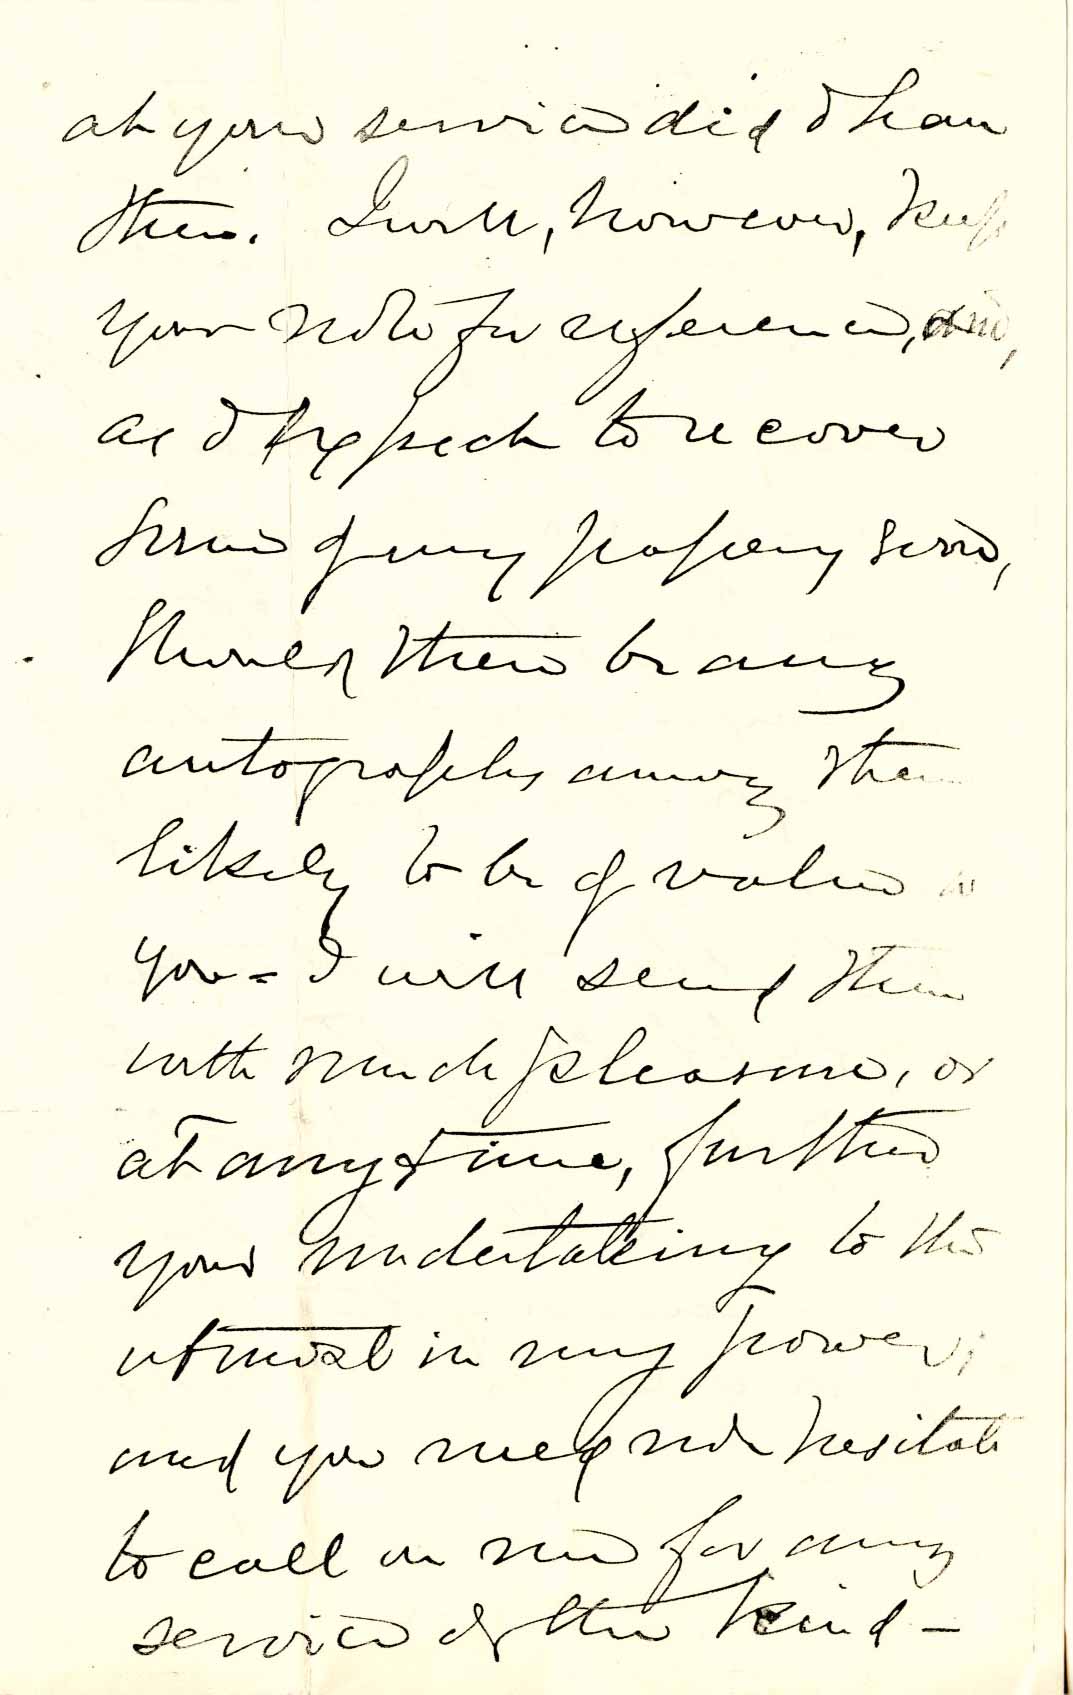 at your service did I have
them. I will, however, keep
your note for reference, and,
as I expect to recover
some of my papers soon,
should there be any
autographs among them
likely to be of value to
you - I will send them
with much pleasure, or
at any time, further
your undertaking to the
utmost in my power,
and you need not hesitate
to call on me for any
service of the kind -